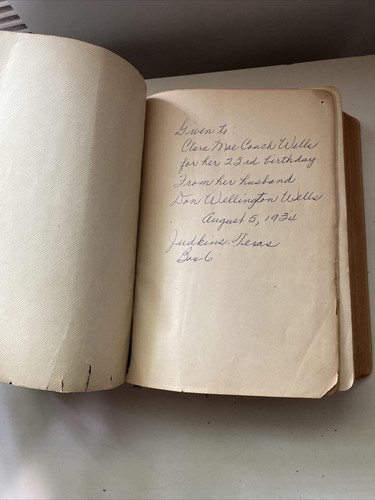 Given to:
Clara Mae Conch Wells
for her 23rd birthday
From her husband
Don Wellington Wells
August 5, 1934
Judkins, Texas
Box 6